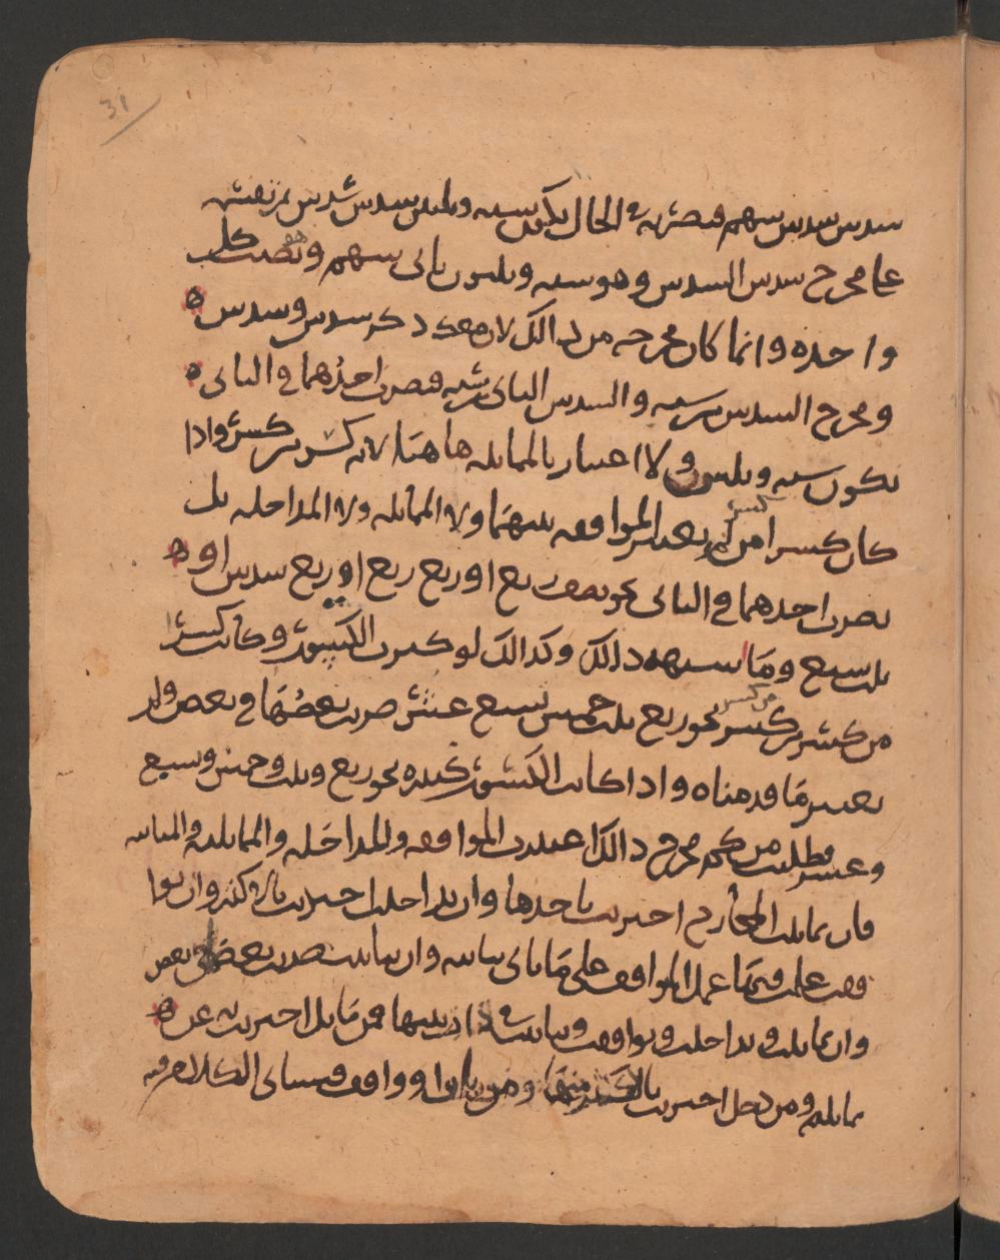 31
سدس سدس سهم فتضربه في الحال يكون سته وثلثين سدس سدس ثم تقسمه
على مخرج سدس السدس وهو سته وثلثون ياتي سهم ونصف كل
واحده وانما كان مخرجه من ذالك لان معك ذكر سدس وسدس ه
ومخرج السدس سته والسدس الثاني سته فتضرب احدهما في الثاني ه
تكون سته وثلثين ولا اعتبار بالمماثله هاهنا لانه كسر من كسر واذا
كان كسرا من كسر لم يعتبر الموافقه بينهما ولا المماثله ولا المداخله بل
تضرب احدهما في الثاني نحو نصف ربع او ربع ربع او ربع سدس او ه
ثلث سبع وما اشبهه ذلك وكذالك لو كثرت الكسور وكانت كسرا
من كسر من كسر نحو ربع ثلث خمس تسع عشر ضربت بعضها في بعض ولم
من كسر
تعتبر ما قدمناه واذا كانت الكسور كثيره نحو ربع وثلث وخمس وسبع
وعشر وطلبت من كم مخرج ذالك اعتبرت الموافقه والمداخله والمماثله والمباينه
فان تماثلت المخارج اجتزيت باحدها وان تداخلت اجتزيت بالاكثر وان توا
فقت عملت فيها عمل الموافقه على ما ياتي بيانه وان تباينت ضربت بعضها في بعض
وان تماثلت وتداخلت وتوافقت وتباينت اذ بينها فمن ماثل اجتزيت به عن ه
مماثله ومن دخل اجتزيت بالاكثر منها ومن باين او وافق فسياتي الكلام فيه